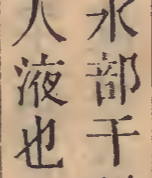 水部干
人液也